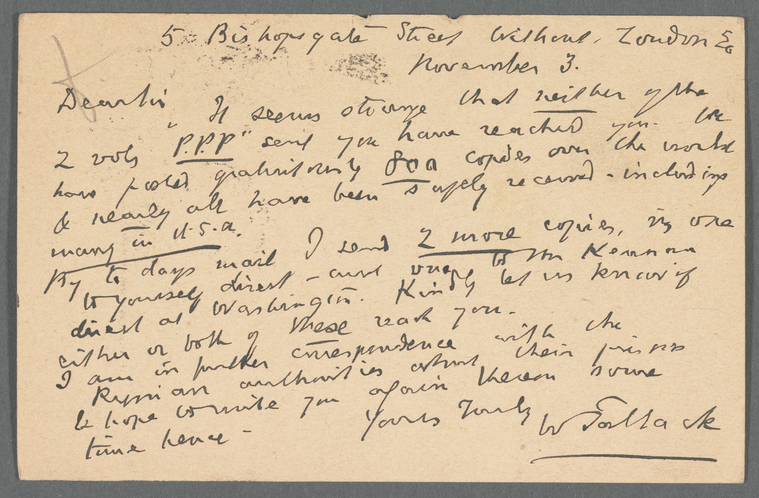 5 Bishopsgate Street Without. London EC
November 3.
Dear Sir It seems strange that neither of the
2 vols "P.P.P" sent you have reached you. We
have posted gratuitously 800 copies over the world
& nearly all have been safely received - including
many in U.S.A.
By to days mail I send 2 more copies, viz one
to yourself direct - and one to Mr Kennan
direct at Washington. Kindly let us know if
either or both of these reach you.
I am in further correspondence with the
Russian authorities about their prisons
& hope to write you again thereon some
time hence -
Yours Truly
W Tallack